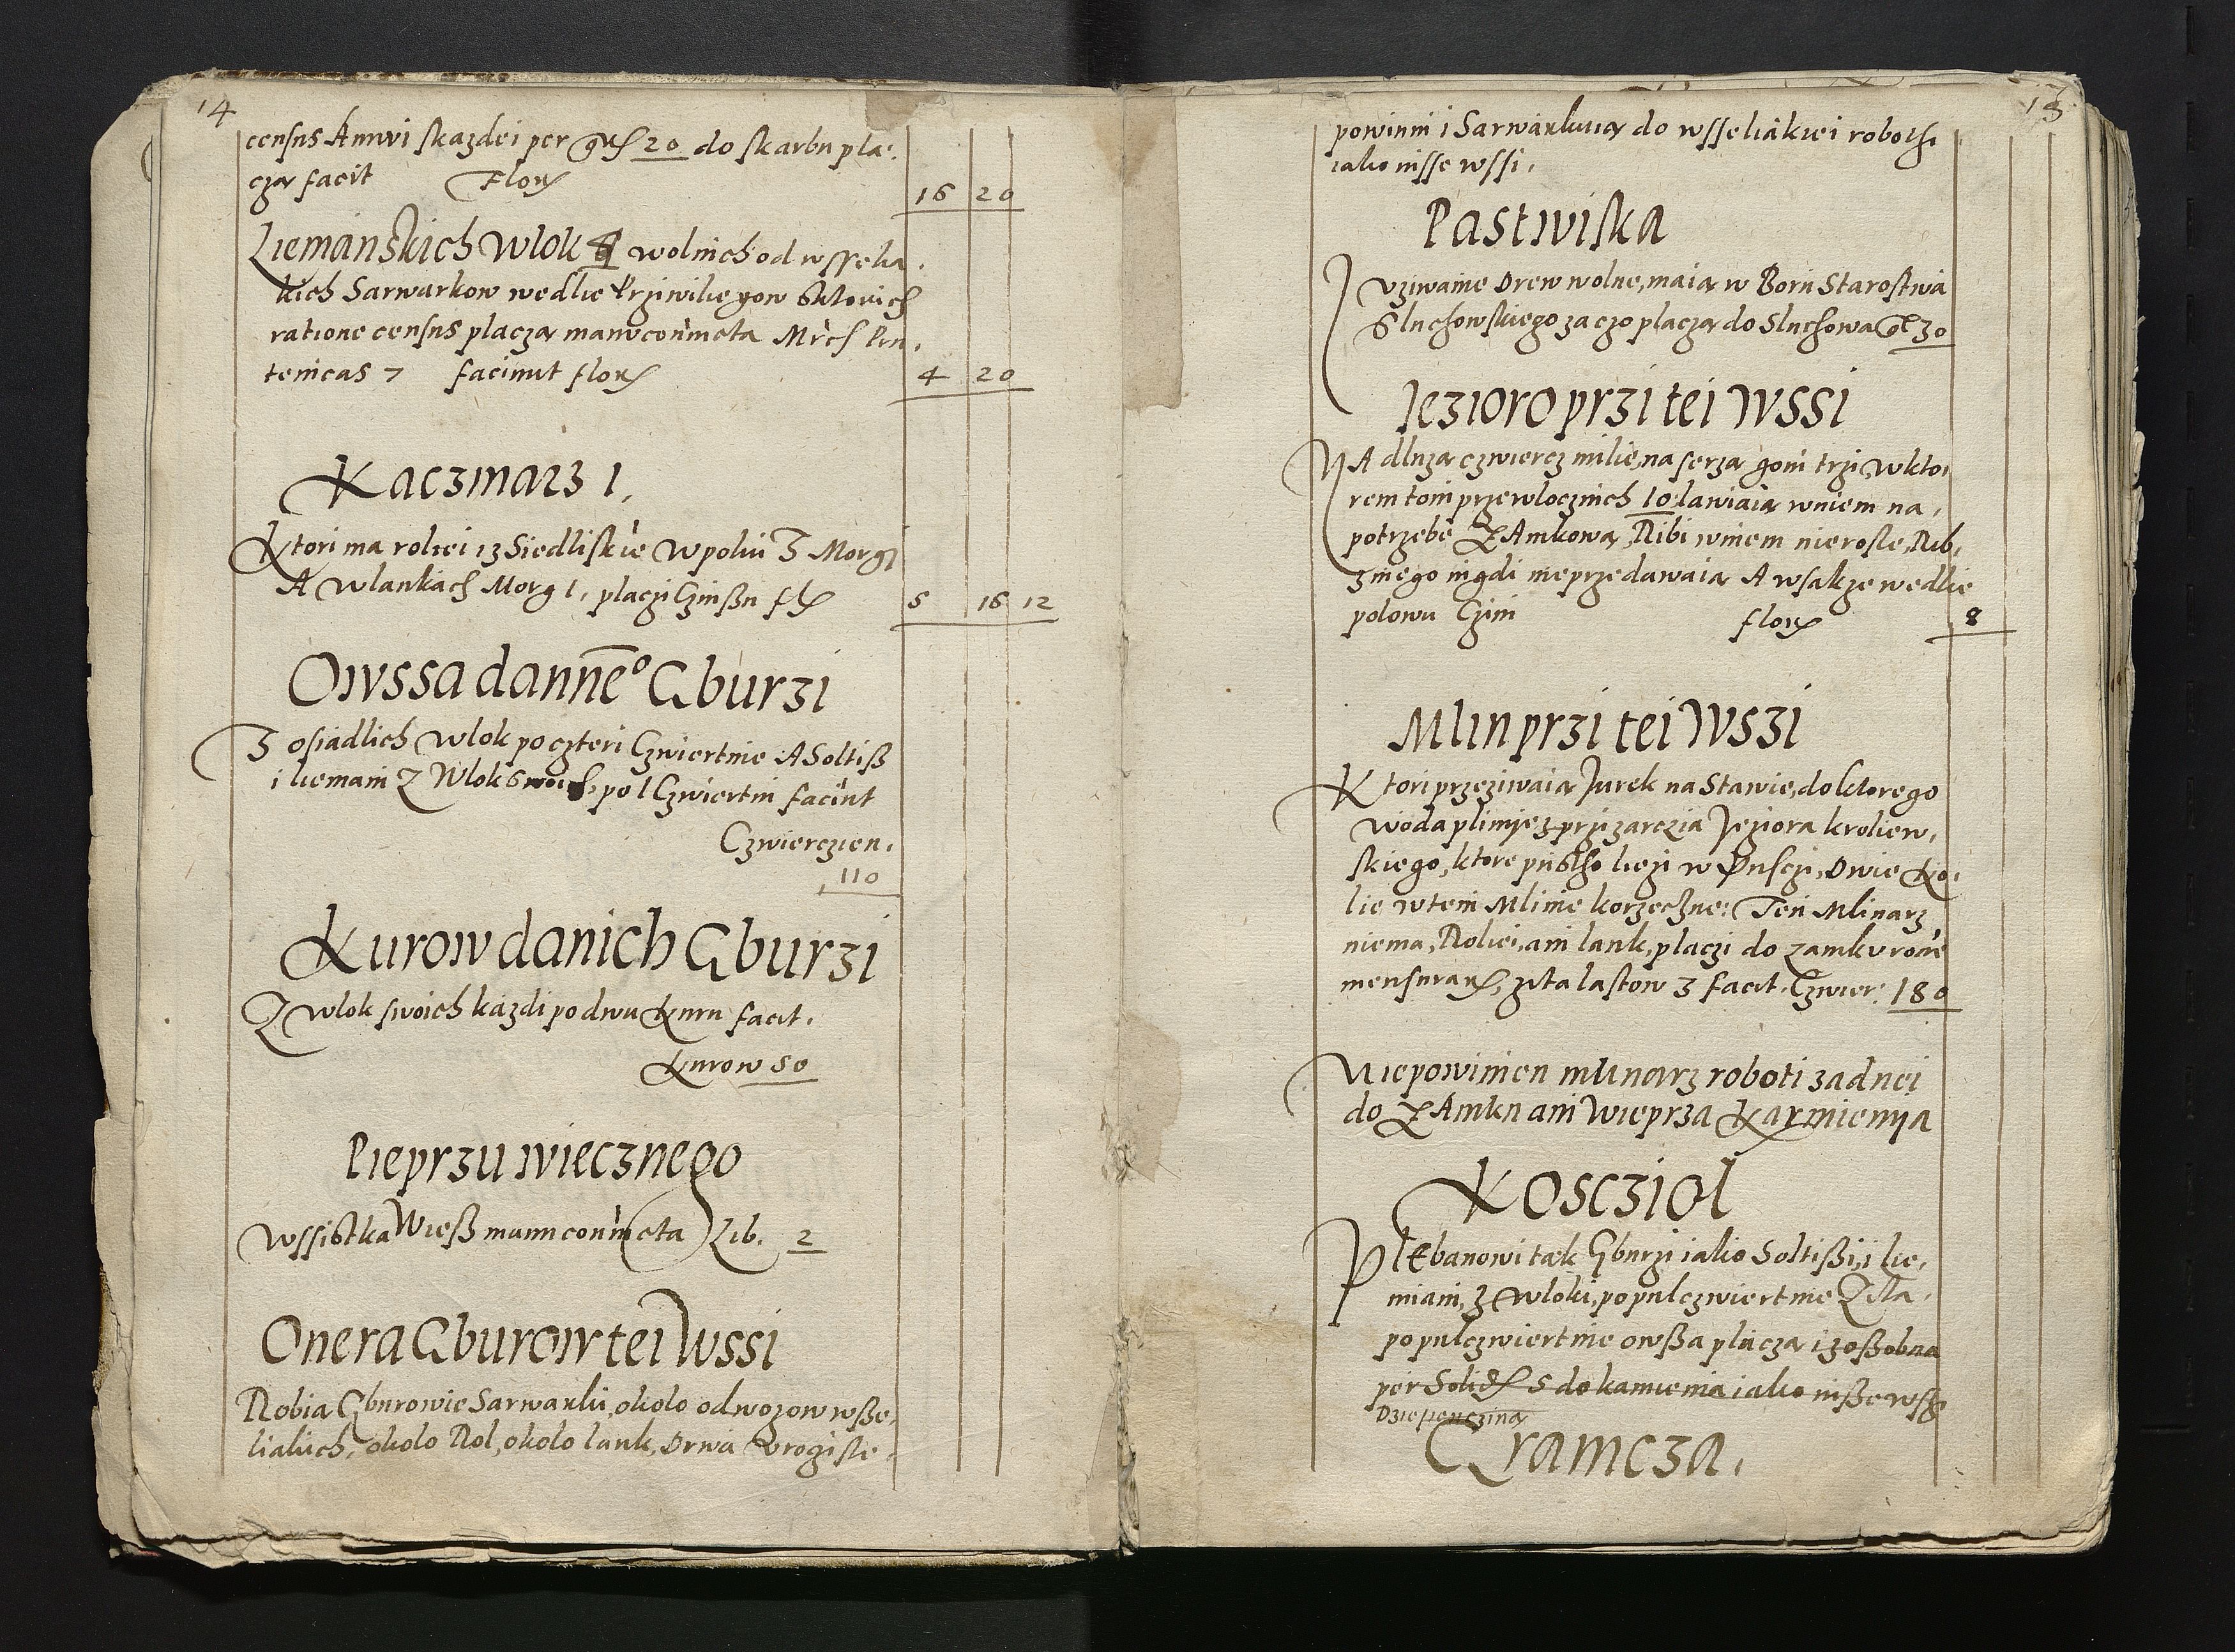 14
censns Annvi skazdei per grs 20 do skarbu pla:
cza facit Flor 16 20
Liemanskich Wlok wolnich od wsselia,
kich Sarwarkow wedlie Prziwiliegow Ktorich
ratione censns placza manv coniuncta Mrcs Pru,
tenicas 7 faciunt flor 4 20
Kaczmarz 1,
Ktori ma roliei iz Siedliskie W poliu 3 Morgi
A W lankach Morg 1, placzi Czinßu fl 5 16 12
Owssa danneo Gburzi
Z osiadlich Wlok po czteri Czwiertnie A Soltiß
i liemani Z Wlok 6 pol Czwiertni facint
Czwierczien,
110
Kurow danich Gburzi
Z Wlok swoich kazdi po dwu Kuru facit,
Kurow 50
Pieprzu wiecznego
Wssistka Wieß manu coniuncta Lib. 2
Onera Gburow tei Wssi
Robia Gburowie Sarwarki, okolo odwozow wsße,
liakich, okolo Rol, okolo lank, Drwa v rogiste,
13
powinni i Sarwarkuia do wsseliakiei roboth
iako insse wssi,
Pastwiska
Vziwanie Drew wolne, maia w Boru Starostwa
Sluchowskiego za czo placza do Sluchowa gr 30
Jezioro przi tei Wssi
NA dluza czwiercz milie, na serza goni trzi, W kto,
rem toni przewlocznich 10 lawiaia w niem na,
potrzebe ZAmkowa, Ribi w niem nierosle, Rib,
znego nigdi nieprzedawaia A wsakze wedlie
polowu Czini flor 8
Mlin przi tei Wszi
Ktori przeziwaia Jurek na Stawie, do ktorego
Woda plinie z przizarczia Jeziora kroliew,
skiego, ktore pustho liezi w Pusczi, Dwie Ko,
lie w tem Mlinie korzeczne: Ten Mlinarz
niema, Roliei, ani lank, placzi do zamku rocne
mensurars, zita lastow 3 facit. Czwier: 180
Niepowinien mlinarz roboti zadnei
do ZAmku ani Wieprza Karmienia
Kosczioł
Plebanowi tak Gburzi iako Soltißi, i lie,
miani, z Wloki, po pulczwiertnie Zita,
po pulczwiertnie owßa placza i zoßobna
per Solid 5 do kamienia iako inße wßi
Dziepenczina
Gramcza,